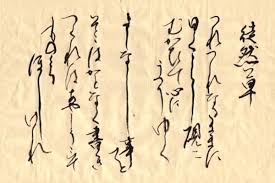 徒然草
つれつれなるままに
日くらし硯に
むかひて心に
うつりゆく
よしなし事を
そこはかとなく書き
つくれはあやしうこそ
ものくる
ほしけれ